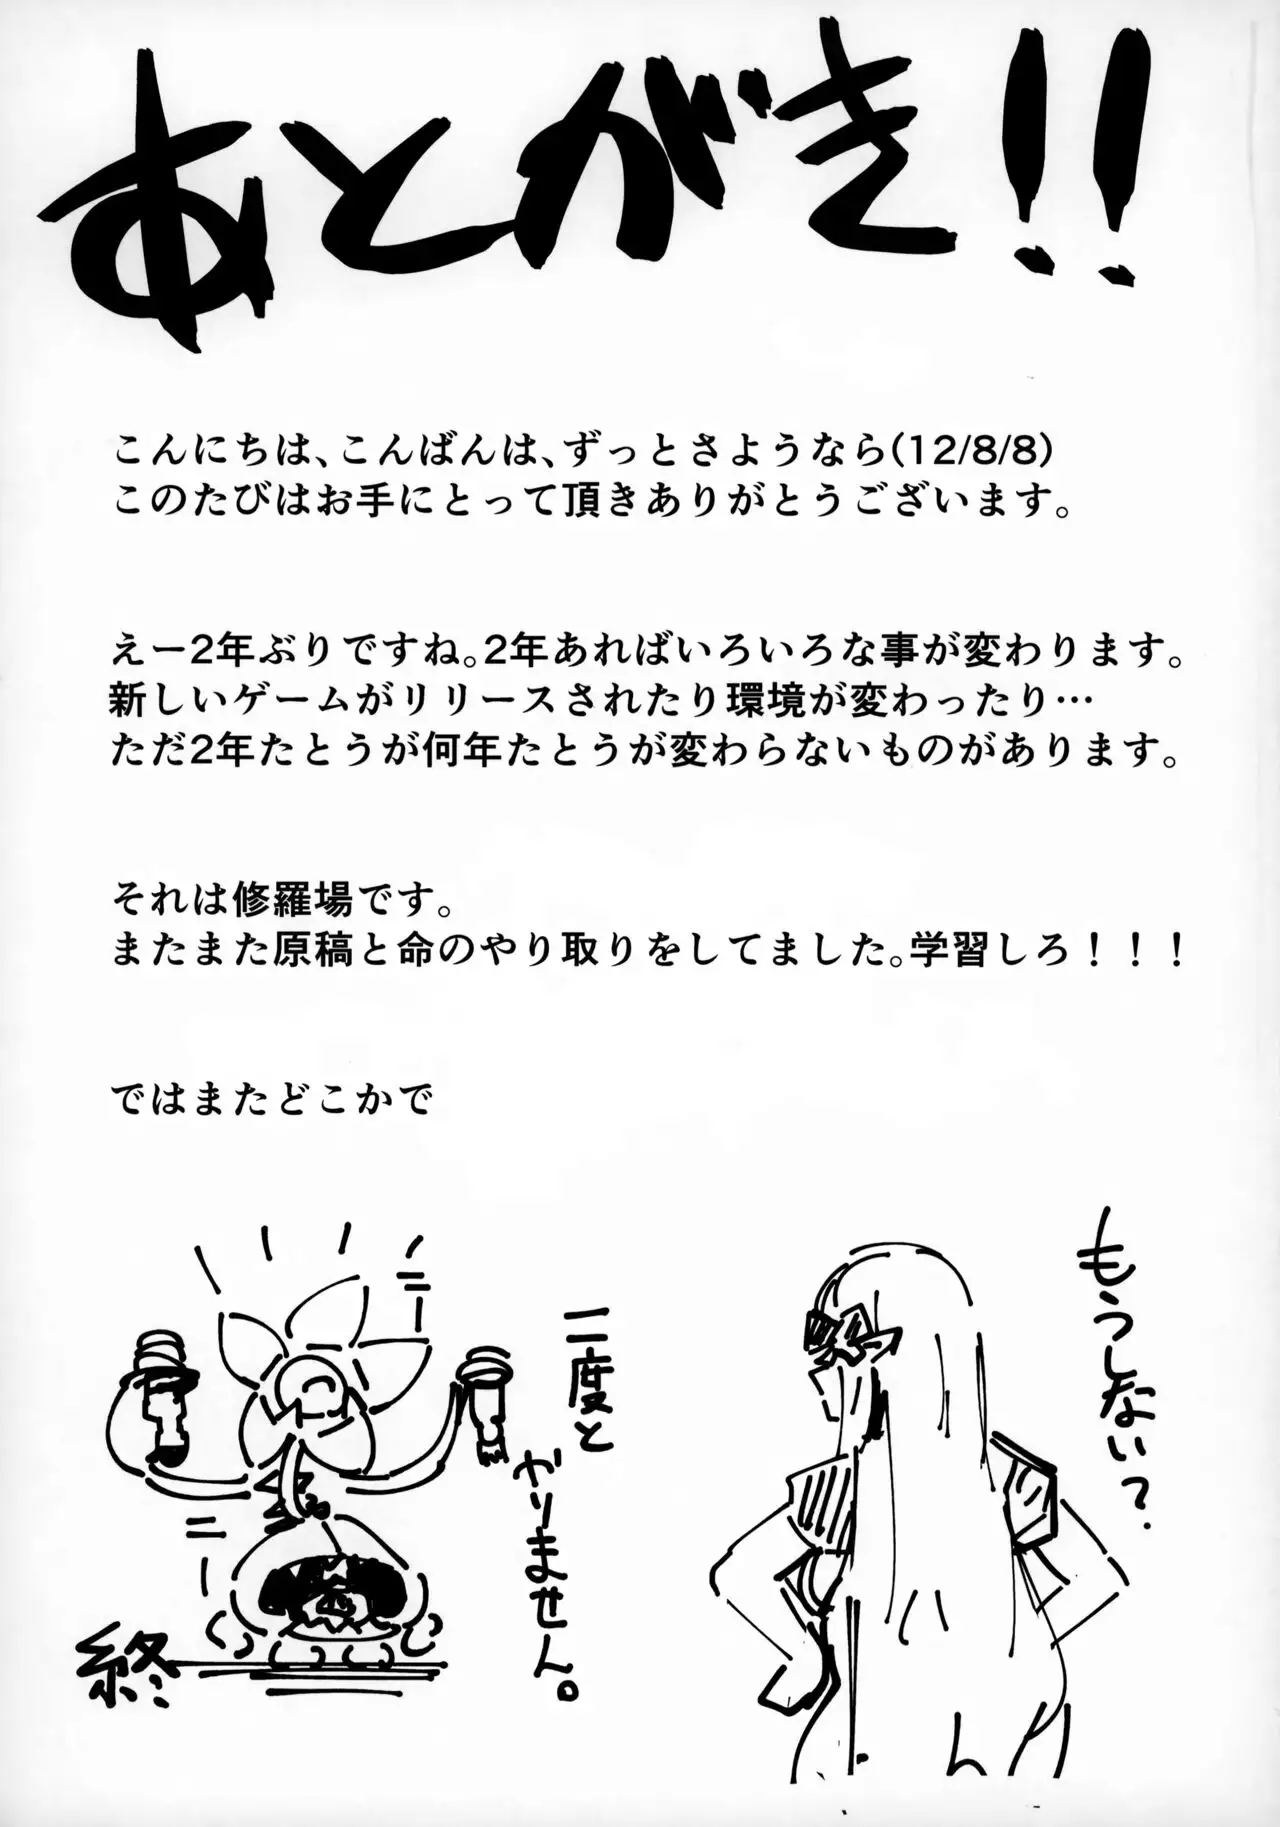 あとがき!!
こんにちは、こんばんは、ずっとさようなら(12/8/8)
このたびはお手にとって頂きありがとうございます。
えー2年ぶりですね。2年あればいろいろな事が変わります。
新しいゲームがリリースされたり環境が変わったり…
ただ2年たとうが何年たとうが変わらないものがあります。
それは修羅場です。
またまた原稿と命のやり取りをしてました。学習しろ！！！
ではまたどこかで
もうしない?
二度と
やりません。
終